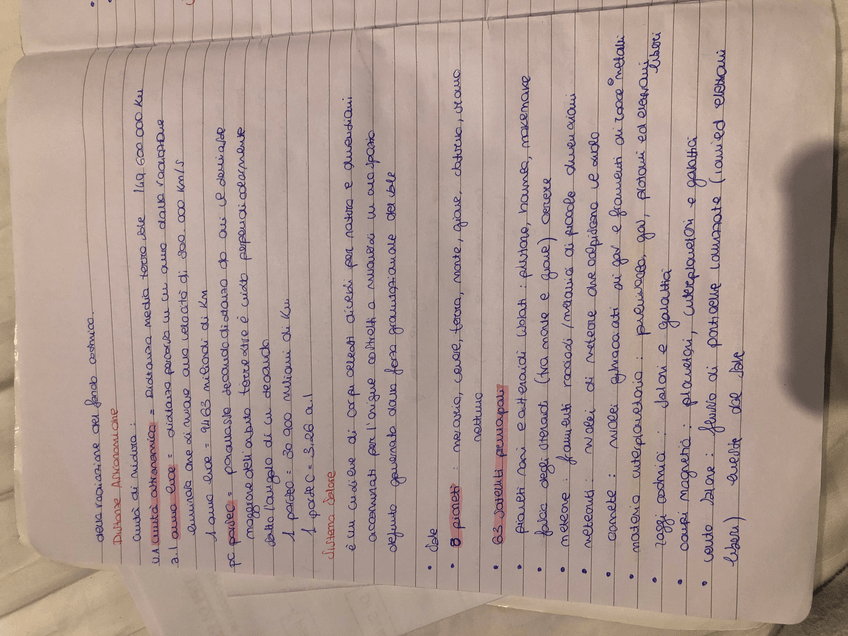 della radiazione del fondo cosmico.
Distanze Astronomiche
unità di misura:
u.a unità astronomica = Distanza media terra sole 149.600.000 Km
a.l anno luce = distanza percorsa in un anno dalla radiazione
luminosa che si muove alla velocità di 300.000 Km/s
1 anno luce = 9463 miliardi di Km
pc parsec = parallasse secondo distanza da cui il semiasse
maggiore dell'orbita terrestre è visto perpendicolarmente
sotto l'angolo di un secondo
1 parsec = 30.900 miliardi di Km
1 parsec = 3.26 a.l
Sistema Solare
è un insieme di corpi celesti diversi per natura e dimensioni
accomunati per l'origine costretti a muoversi in uno spazio
definito governato dalla forza gravitazionale del sole
• Sole
• 8 pianeti: mercurio, venere, terra, marte, giove, saturno, urano
nettuno
• 63 satelliti principali
• pianeti nani e asteroidi isolati: plutone, haumea, makemake
• fascia degli asteroidi (tra marte e giove) cerere
• meteore: frammenti rocciosi/metallici di piccole dimensioni
• meteoriti: nuclei di meteore che colpiscono il suolo
• comete: nuclei ghiacciati di gas e frammenti di rocce metalli
• materia interplanetaria: pulviscolo, gas, protoni ed elettroni
liberi
• raggi cosmici: solari e galattici
• campi magnetici: planetari, interplanetari e galattici
• vento solare: flusso di particelle ionizzate (ioni ed elettroni
liberi) emesse dal sole